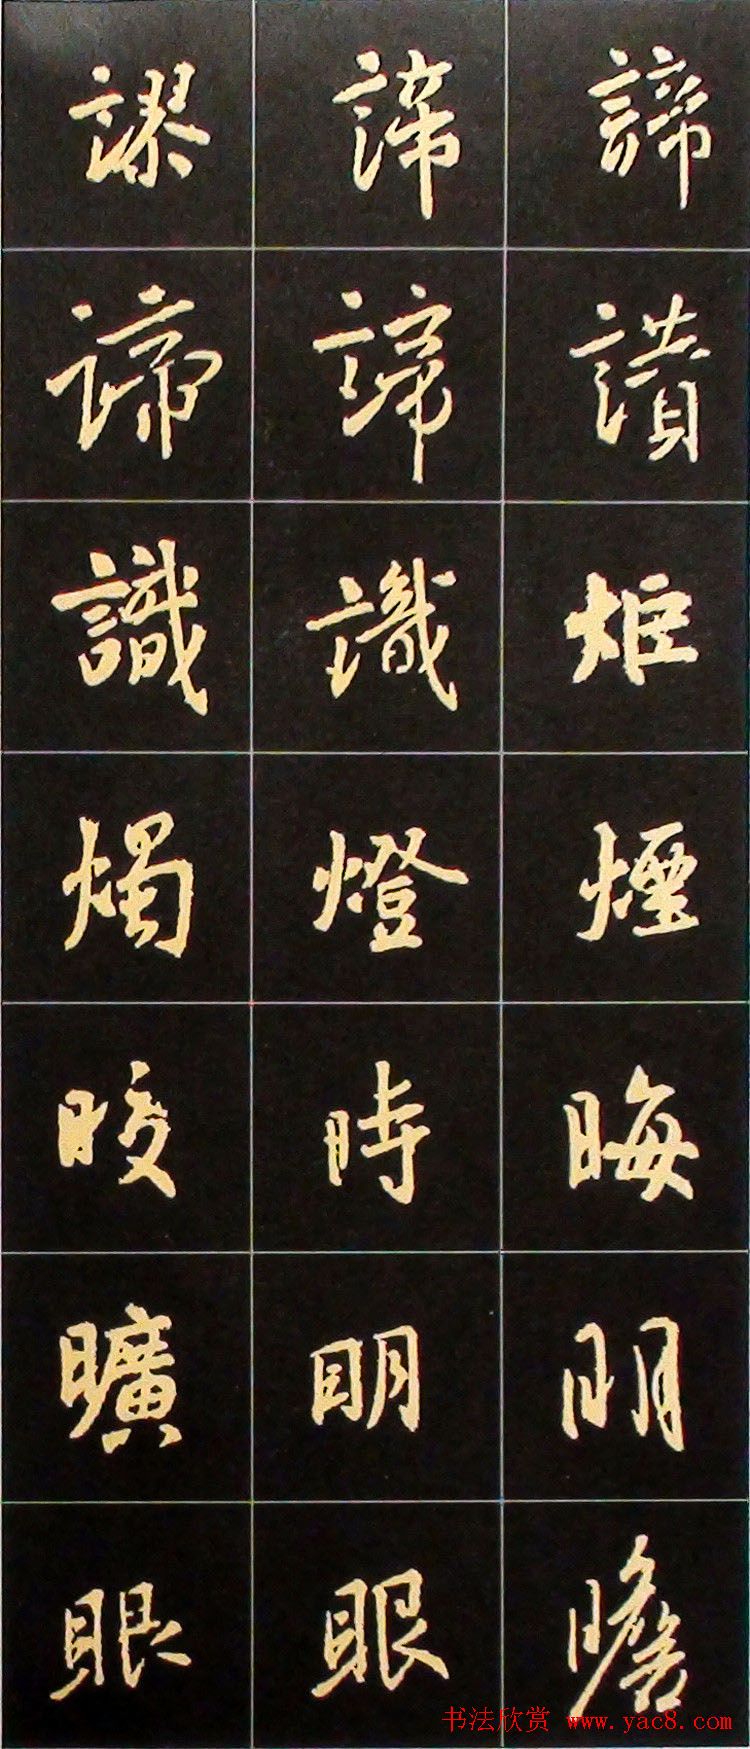 謬 諦 諦
諦 諦
識 識 炬
燭 燈 煙
時 晦
曠 明 明
眼 眼 瞻
书法欣赏 www.yac8.com